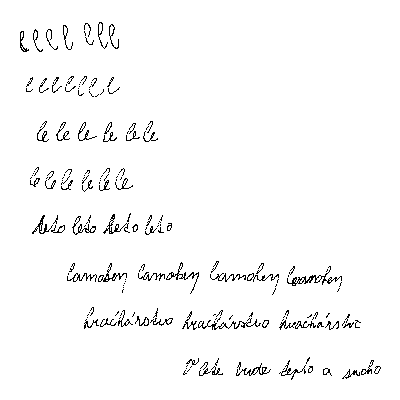 llll lll
lllllll
le le le le le le
le le le le le le
leto leto leto leto
lamoken lamoken lamoken lamoken
hračkárstvo hračkárstvo hračkárstvo
V lete bude teplo a sucho